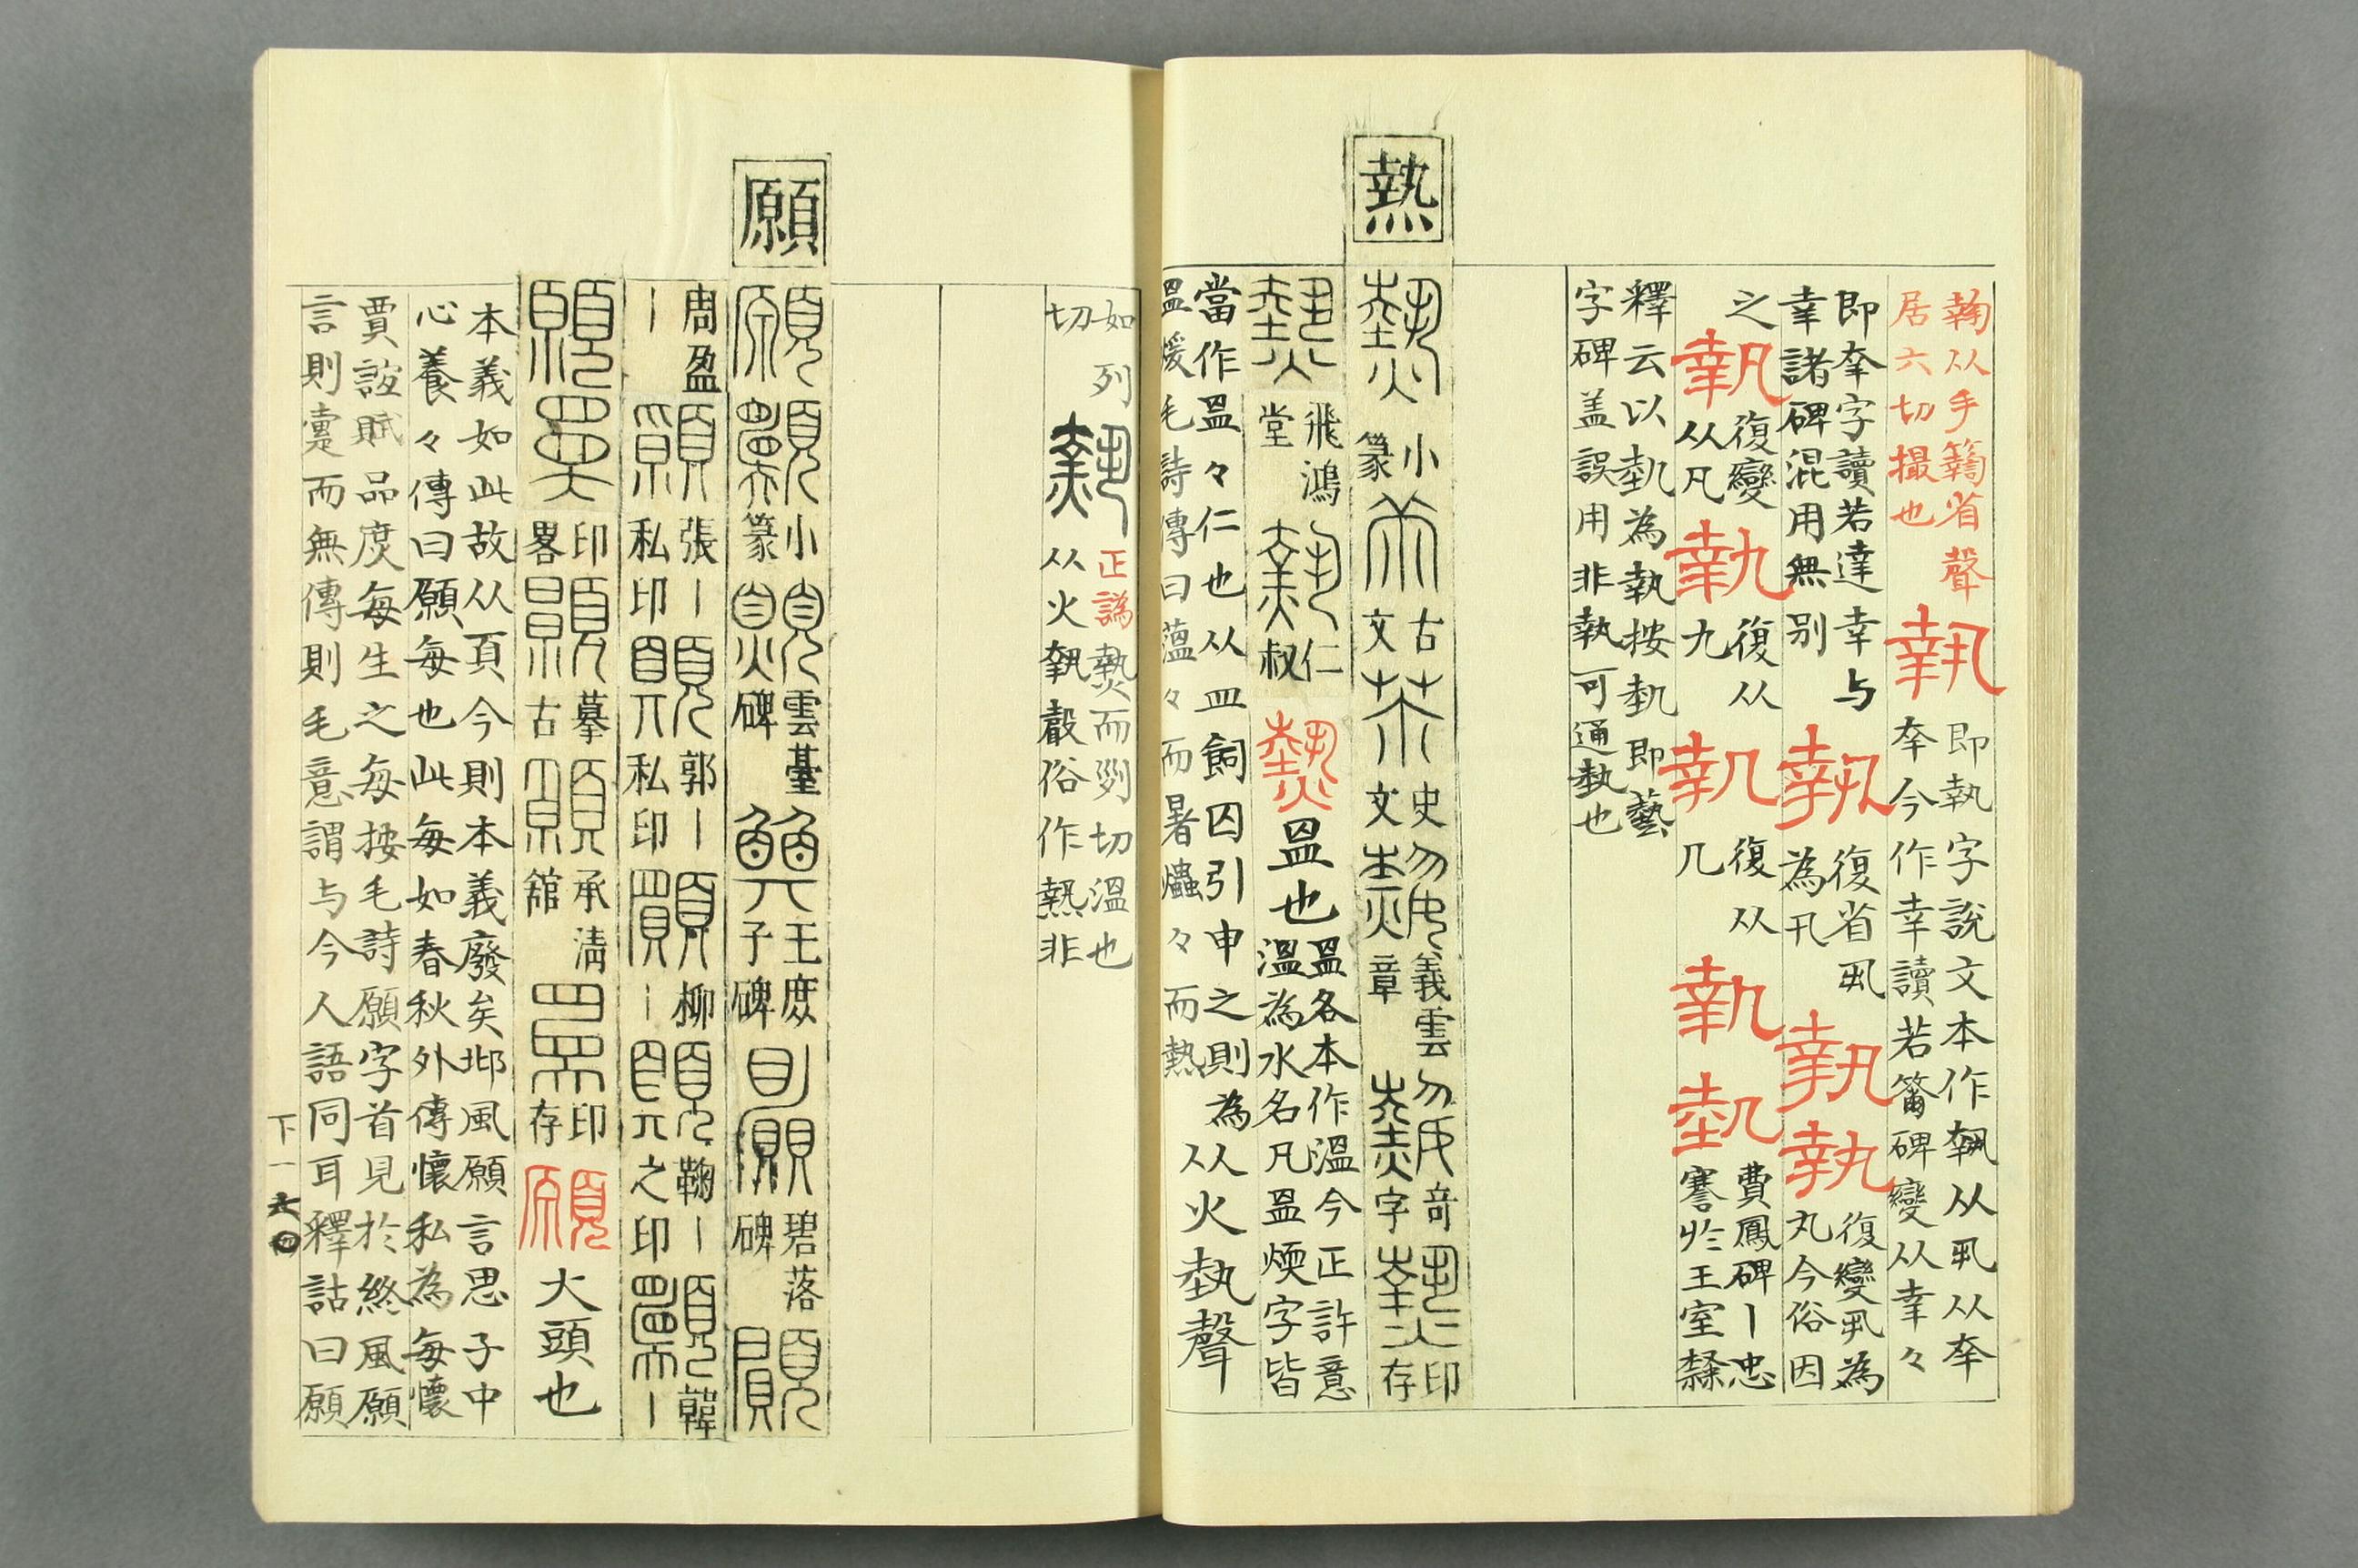 䩗从手籟省聲
居六切撮也
執
即執字說文本作𡙕从丮从㚔
㚔今作幸讀若籋碑變从幸々
即㚔字讀若達幸与
幸諸碑混用無別
執
復省丮
為卂
執
執
復變丮為
丸今俗因
之
執
復變
从凡
執
復从
九
執
復从
几
執
埶
費鳳碑丨忠
謇於王室隸
釋云以埶為執按埶即藝
字碑盖誤用非執可通埶也
熱
熱
小篆
古文
史文
義雲章
奇字
印存
熱
飛鴻堂
仁叔
熱
𥁕也
𥁕各本作溫今正許意
溫為水名凡𥁕煗字皆
當作𥁕々仁也从皿飼囚引申之則為
𥁕煖毛詩傳曰薀々而暑爞々而熱
从火埶聲
如列
切
熱
正譌
爇而列切溫也
从火𡙕聲俗作熱非
願
願
小篆
雲臺碑
王庶子碑
碧落碑
周盈
丨
張丨
私印
郭丨
私印
柳
丨
鞠丨
之印
韓
丨
印畧
摹古
承清館
印存
願
大頭也
本義如此故从頁今則本義廢矣邶風願言思子中
心養々傳曰願每也此每如春秋外傳懷私為每懷
賈誼賦品庶每生之每按毛詩願字首見於終風願
言則疐而無傳則毛意謂与今人語同耳釋詁曰願
下一六〇